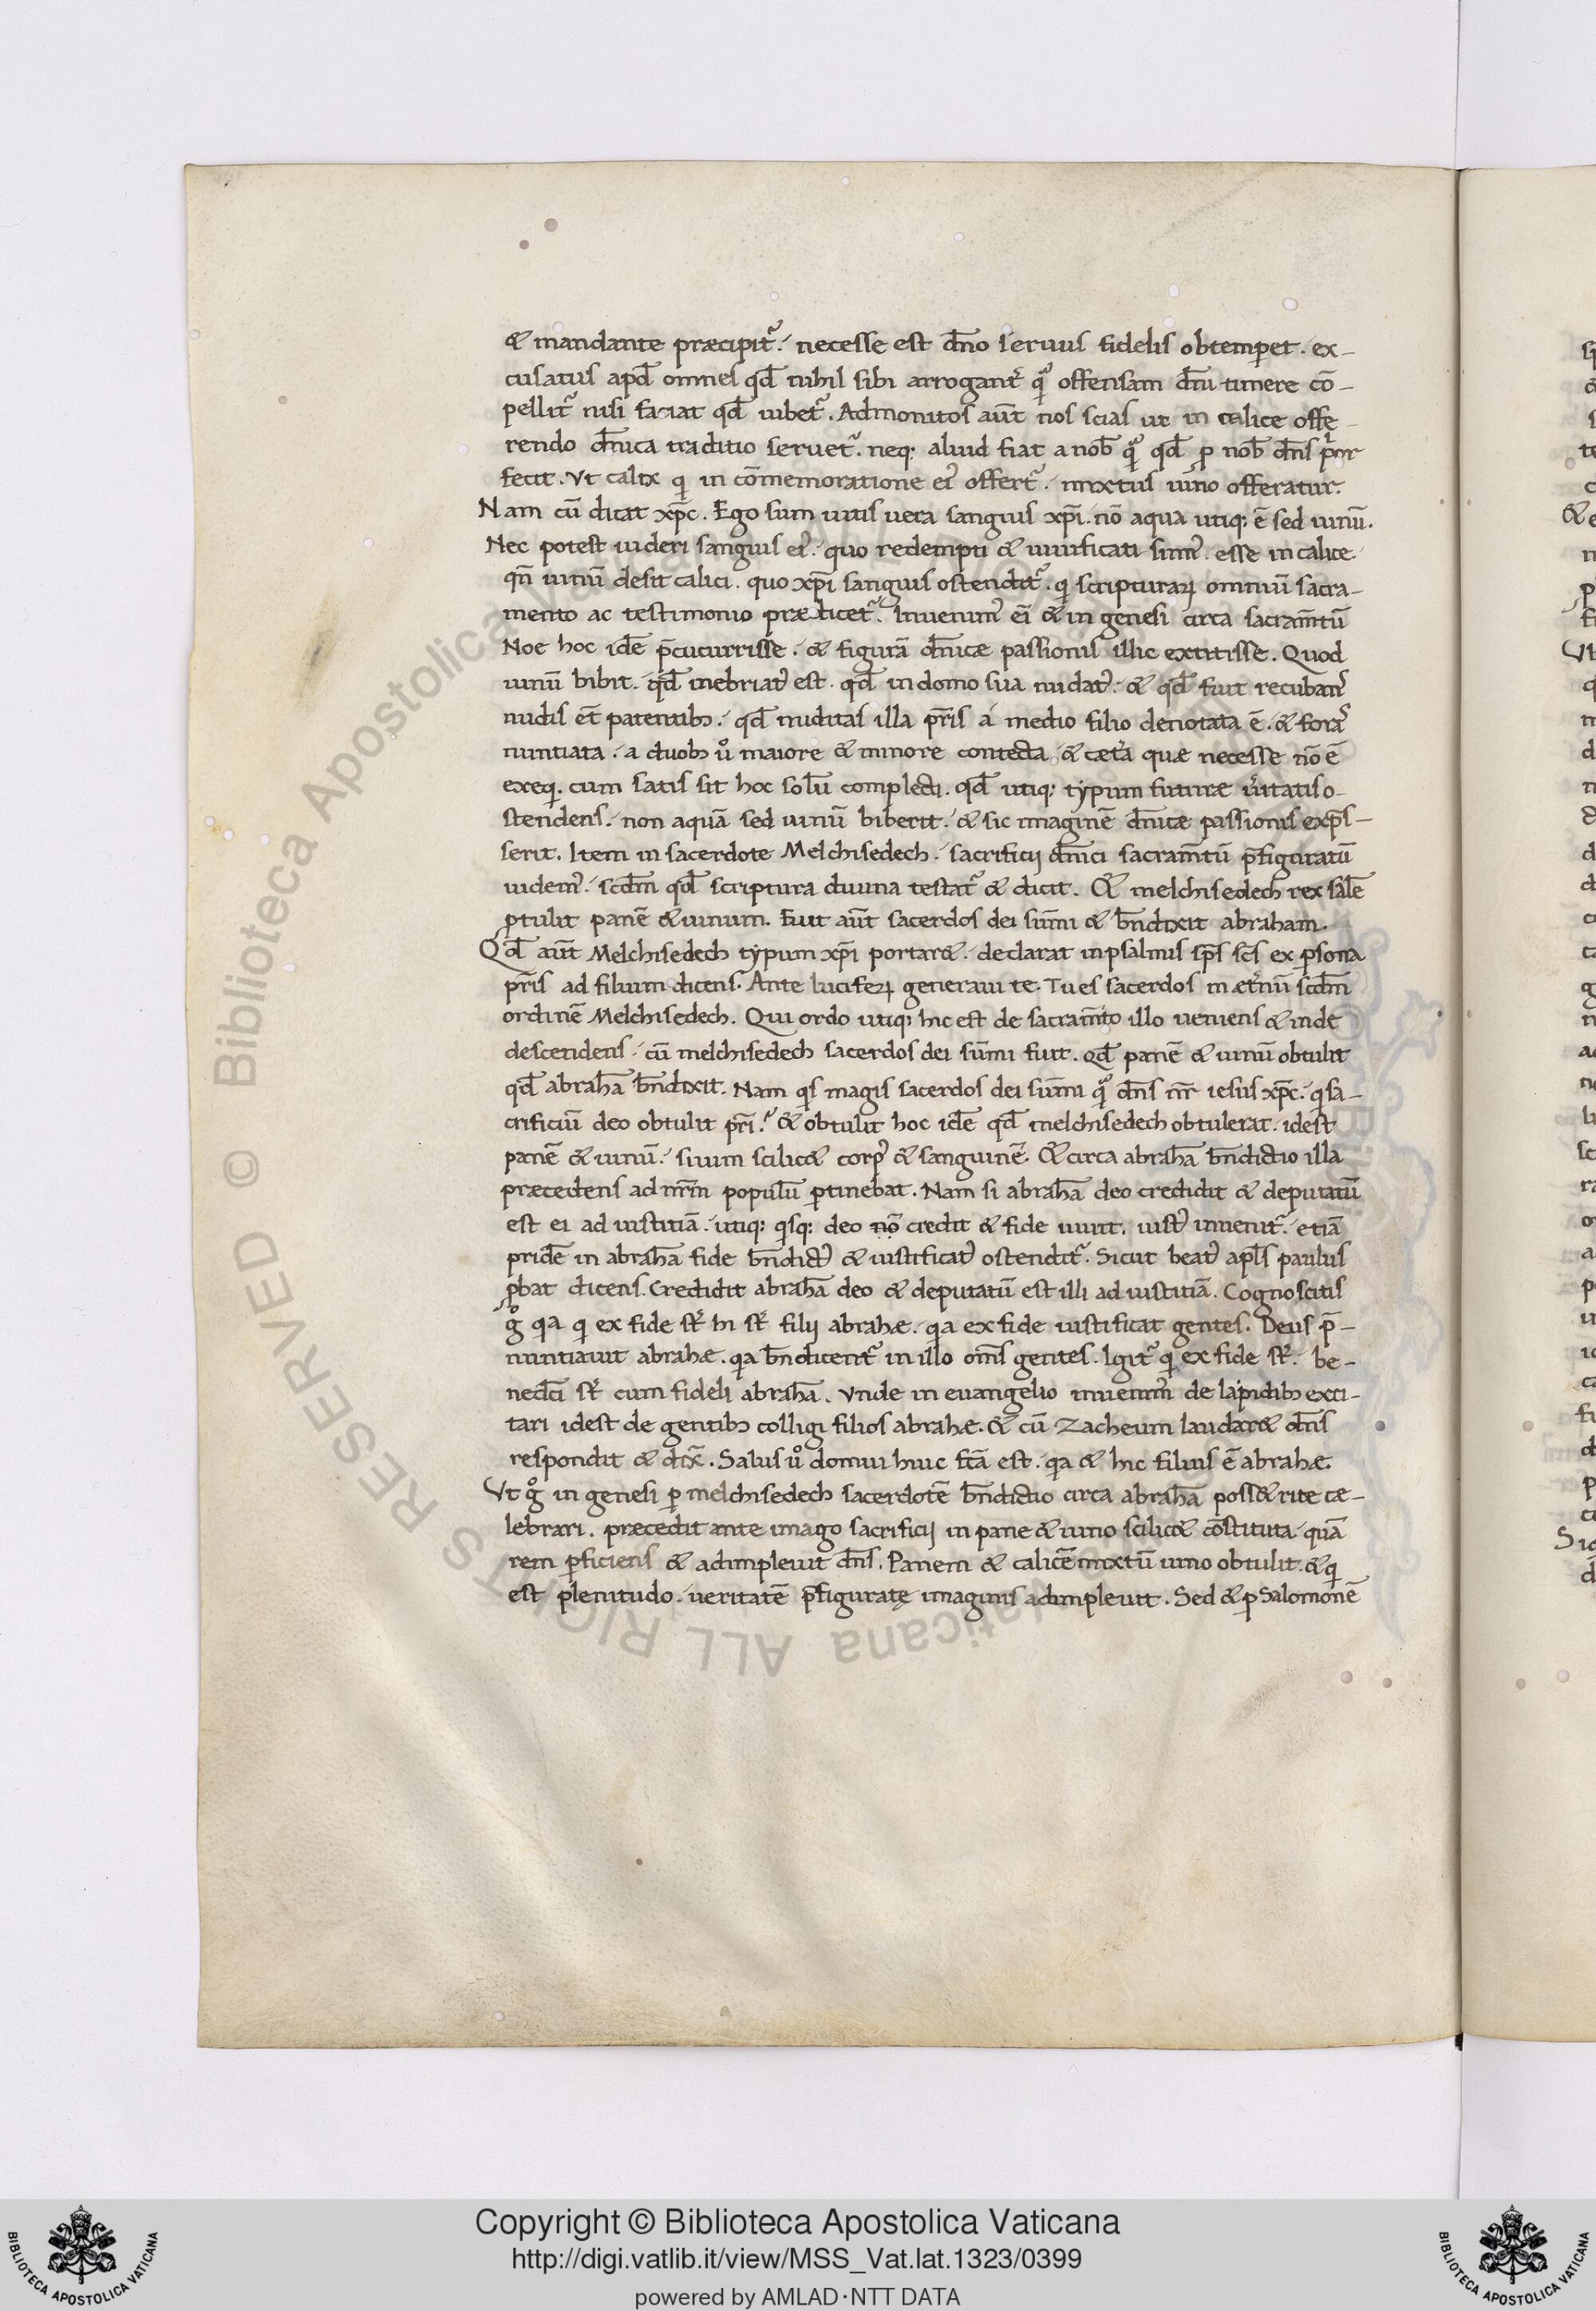 & mandante præcipit᷑. necesse est dño seruus fidelis obtemperet. ex-
cusatus apđ omnes qđ nihil sibi arrogant᷑ qͣ offensam dñi timere cō-
pellit᷑ nisi faciat qđ iubet᷑. Admonitos aūt nos scias ut in calice offe-
rendo dñica traditio seruet᷑. neq; aliud fiat a nob̄ qͣ qđ ꝓ nob̄ dñs prior
fecit. Vt calix qi in cōmemoratione ei᷑ offert᷑. mixtus uino offeratur.
Nam cū dicat xp̄c. Ego sum uitis uera sanguis xp̄i. nō aqua utiq; ē sed uinū.
Nec potest uideri sanguis ei᷑. quo redempti & uiuificati sum᷑. esse in calice
qn̄ uinū desit calici. quo xp̄i sanguis ostendit᷑. qi scripturaꝝ omniū sacra-
mento ac testimonio prædicet᷑. Inuenim᷑ eī & in genesi circa sacram̄tū
Noe hoc idē p̄cucurrisse. & figurā dñicæ passionis illic extitisse. Quod
uinū bibit. qđ inebriat᷑ est. qđ in domo sua nudat᷑. & qđ fuit recubans
nudis et̄ patentibꝫ. qđ nuditas illa pr̄is á medio filio denotata ē. & foras
nuntiata. a duobꝫ ů maiore & minore contecta. & cæt᷑a quæ necesse nō ē
exeqi. cum satis sit hoc solū complecti. qđ utiq; typum futuræ u᷑itatis o-
stendens. non aquā sed uinū biberit. & sic imaginē dñicæ passionis exp̄s-
serit. Item in sacerdote Melchisedech. sacrificij dñici sacram̄tū p̄figuratū
uidem᷑. scd̄m qđ scriptura diuina testat᷑ & dicit. & melchisedech rex salē
ꝓtulit panē & uinum. Fuit aūt sacerdos dei sum̄i & bn̄dixit abraham.
Qđ aūt Melchisedech typum xp̄i portar&. declarat in psalmis sp̄s sc̄s ex ꝑsona
pr̄is ad filium dicens. Ante luciferꝝ generaui te. Tu es sacerdos in æt᷑nū scd̄m
ordinē Melchisedech. Qui ordo utiq; hic est de sacram̄to illo ueniens & inde
descendens. cū melchisedech sacerdos dei sum̄i fuit. qđ panē & uinū obtulit
qđ abrahā bn̄dixit. Nam qis magis sacerdos dei sum̄i qͣ dñs nr̄ iesus xp̄c. qi sa-
crificiū deo obtulit pr̄i.? & obtulit hoc idē qđ melchisedech obtulerat. idest
panē & uinū. suum scilic& corp᷑ & sanguinē. & circa abrahā bn̄dictio illa
præcedens ad nr̄m populū ꝑtinebat. Nam si abrahā deo credidit & deputatū
est ei ad iustitiā. utiq; qisq; deo nō credit & fide uiuit. iust᷑ inuenit᷑. etiā
pridē in abrahā fide bn̄dict᷑ & iustificat᷑ ostendit᷑. Sicut beat᷑ apl̄s paulus
ꝓbat dicens. Credidit abrahā deo & deputatū est illi ad iustitiā. Cognoscitis
g̊ qia qi ex fide st᷑ hi st᷑ filij abrahæ. qia ex fide iustificat gentes. Deus p̄-
nuntiauit abrahæ. qia bn̄dicent᷑ in illo oms̄ gentes. Igit᷑ qi ex fide st᷑. be-
nedc̄i st᷑ cum fideli abrahā. Vnde in euangelio inuenim᷑ de lapidibꝫ exci-
tari idest de gentibꝫ colligi filios abrahæ. & cū Zacheum laudar& dñs
respondit & dix̄. Salus ů domui huic fc̄ā est. qia & hic filius ē abrahæ.
Vt g̊ in genesi ꝑ melchisedech sacerdotē bn̄dictio circa abrahā poss& rite cæ-
lebrari. præcedit ante imago sacrificij in pane & uino scilic& cōstituta. quā
rem ꝑficiens & adimpleuit dñs. Panem & calicē mixtū uino obtulit. & qi
est plenitudo. ueritatē p̄figuratę imaginis adimpleuit. Sed & ꝑ Salomonē
© Biblioteca Apostolica Vaticana ALL RIGHTS RESERVED
Copyright © Biblioteca Apostolica Vaticana
http://digi.vatlib.it/view/MSS_Vat.lat.1323/0399
powered by AMLAD·NTT DATA
BIBLIOTECA APOSTOLICA VATICANA
BIBLIOTECA APOSTOLICA VATICANA